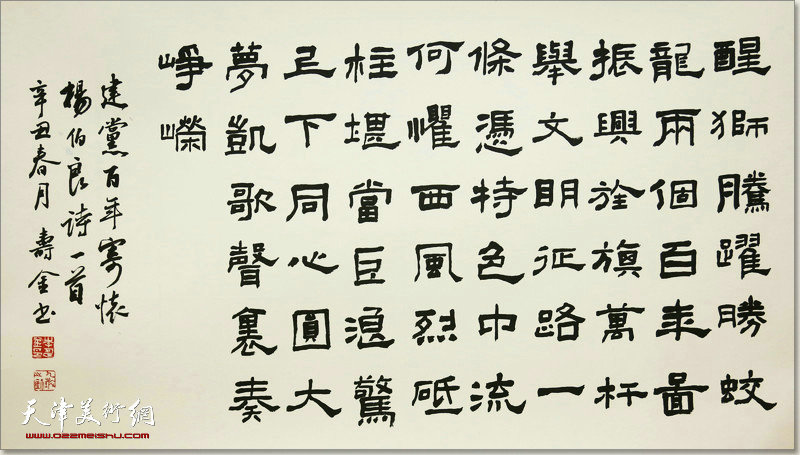 醒獅騰躍勝蛟
龍兩個百年圖
振興旌旗萬杆
舉文明征路一
條憑特色中流
何懼西風烈砥
柱堪當巨浪驚
上下同心圓大
夢凱歌聲裏奏
崢嶸
建黨百年寄懷
楊伯良詩一首
辛丑春月壽金书
天津美術網
www.022meishu.com